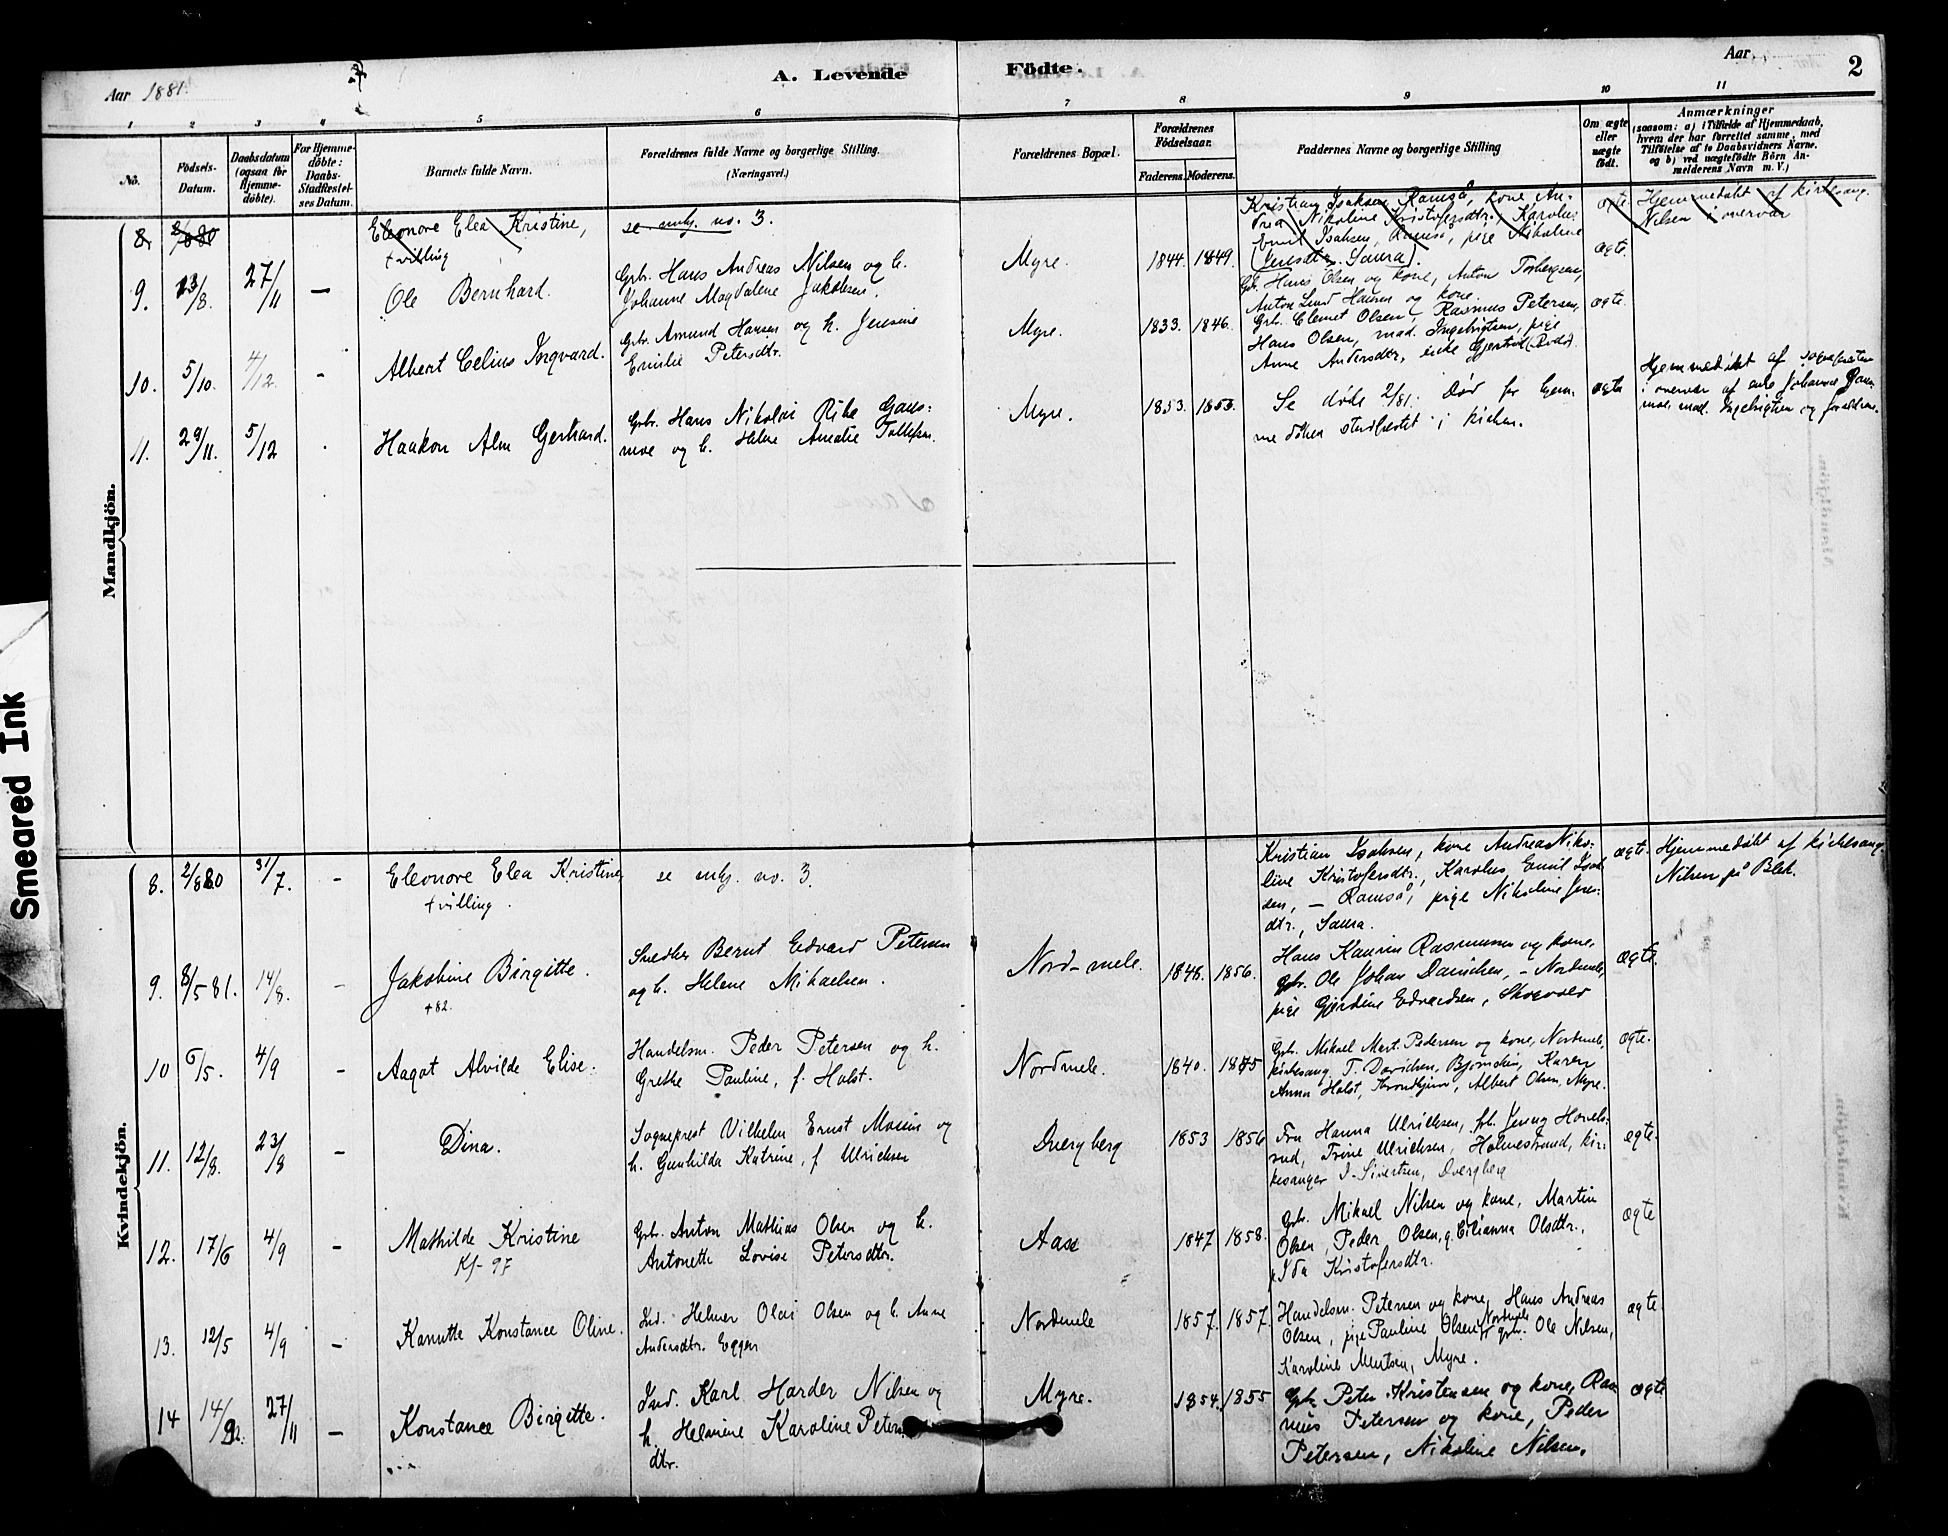 Aar 1881.
A. Levende
Födte.
Aar
2
1 2 3 4 5 6 7 8 9 10 11
No.
Födsels-
Datum.
Daabsdatum
(ogsaa for
Hjemme-
döbte).
For Hjemme-
döbte:
Daabs-
Stadfæstel-
ses Datum.
Barnets fulde Navn.
Forældrenes fulde Navne og borgerlige Stilling.
(Næringsvei.)
Forældrenes Bopæl.
Forældrenes
Födselsaar.
Faderens. Moderens.
Faddernes Navne og borgerlige Stilling
Om ægte
eller
uægte
födt.
Anmærkninger
(saasom: a) i Tilfælde af Hjemmedaab,
hvem der har forrettet samme, med
Tilföielse af to Daabsvidners Navne.
og b) ved uægtefödte Börn An-
melderens Navn m. V.)
Mandkjön.
8.
Eleonore Elea Kristine,
tvilling
se mkg. no. 3.
Kristian Isaksen, Ramså, kone An-
drea Nikoline Kristofersdtr., Karolus
Emil Isaksen, Ramså, pige Nikoline
Jensdtr. Saura.
ægte
Hjemmedøbt af kirkesang.
Nilsen i overvær
9. 23/8. 27/11 —
Ole Bernhard.
Grb. Hans Andreas Nilsen og h.
Johanne Magdalene Jakobsen.
Myre.
1844. 1849.
Grb. Hans Olsen og kone, Anton Torbergsen,
Anton Lund Hansen og kone.
ægte.
10. 5/10. 4/12. -
Albert Celius Ingvard.
Grb. Amund Hansen og h. Jensine
Emilie Petersdtr.
Myre.
1833. 1846.
Grb. Clemet Olsen, Rasmus Petersen,
Hans Olsen, mad. Ingebrigtsen, pige
Anne Andersdtr., enke Gjertrud
ægte.
11. 29/11. 5/12 .
Haakon Alm Gerhard.
Grb. Hans Nikolai Ribe Gaus-
moe og h. Helene Amalie Tollefsen.
Myre.
1853. 1853.
Se døde 2/81. Død før hjem-
me dåben stadfæstet i kirken.
ægte
Hjemmedøbt af sognepresten
i overvær af enke Johanne
mad. Ingebrigtsen og forældrene.
Kvindekjön.
8. 2/8 80 31/7. -
Eleonore Elea Kristine,
tvilling.
se mkg. no. 3.
Kristian Isaksen, kone Andrea Niko-
line Kristofersdtr., Karolus Emil Isak-
sen, — Ramså, pige Nikoline Jens-
dtr., Saura.
ægte.
Hjemmedøbt af kirkesang.
Nilsen på Blek.
9. 8/5 81. 14/8. -
Jakobine Birgitte.
+82.
Snedker Bernt Edvard Petersen
og h. Helene Mikaelsen.
Nord-mele.
1848. 1856.
Hans Kaurin Rasmussen og kone,
grb. Ole Johan Danielsen, - Nordmele,
pige Gjærdine Edvardsen, Skogvold
ægte.
10 6/5. 4/9 -
Aagot Alvilde Elise.
Handelsm. Peder Petersen og h.
Grethe Pauline, f. Holst.
Nordmele.
1840. 1845
Grb. Mikael Mart. Pedersen og kone, Nordmele,
kirkesang. T. Davidsen, Bjørnskin, Karen
Anna Holst, Trondhjem, Albert Olsen, Myre.
ægte.
11. 12/8. 23/8 -
Dina.
Sogneprest Vilhelm Ernst og
h. Gunhilda Katrine, f Ulrichsen
Dvergberg
1853 1856
Fru Hanna Ulrichsen, frk. Jenny Hovels-
rud, Trine Ulrichsen, Holmestrand, kir-
kesanger I. Sivertsen, Dvergberg
ægte.
12. 17/6 4/9 -
Mathilde Kristine
Kf- 97
Grb. Anton Mathias Olsen og h.
Antonette Lovise Petersdtr.
Aase
1847 1858.
Grb. Mikael Nilsen og kone, Martin
Olsen, Peder Olsen, g. Elianna Olsdtr.,
p. Ida Kristofersdtr.
ægte
13. 12/5 4/9 -
Kanutte Konstance Oline.
Ind. Helmer Olai Olsen og h. Anne
Andersdtr. Eggen
Nordmele
1857. 1857.
Handelsm. Petersen og kone, Hans Andreas
Olsen, pige Pauline Olsen Nordmele, grb. Ole Nilsen,
Karoline Mentsen, Myre.
ægte.
14 14/9. 27/11 -
Konstance Birgitte.
Ind. Karl Harder Nilsen og
h. Helmine Karoline Peters-
dtr.
Myre.
1854. 1855
Grb. Peter Kristensen og kone, Ras-
mus Petersen og kone, Peder
Petersen, Nikoline Nilsen.
ægte
Smeared Ink